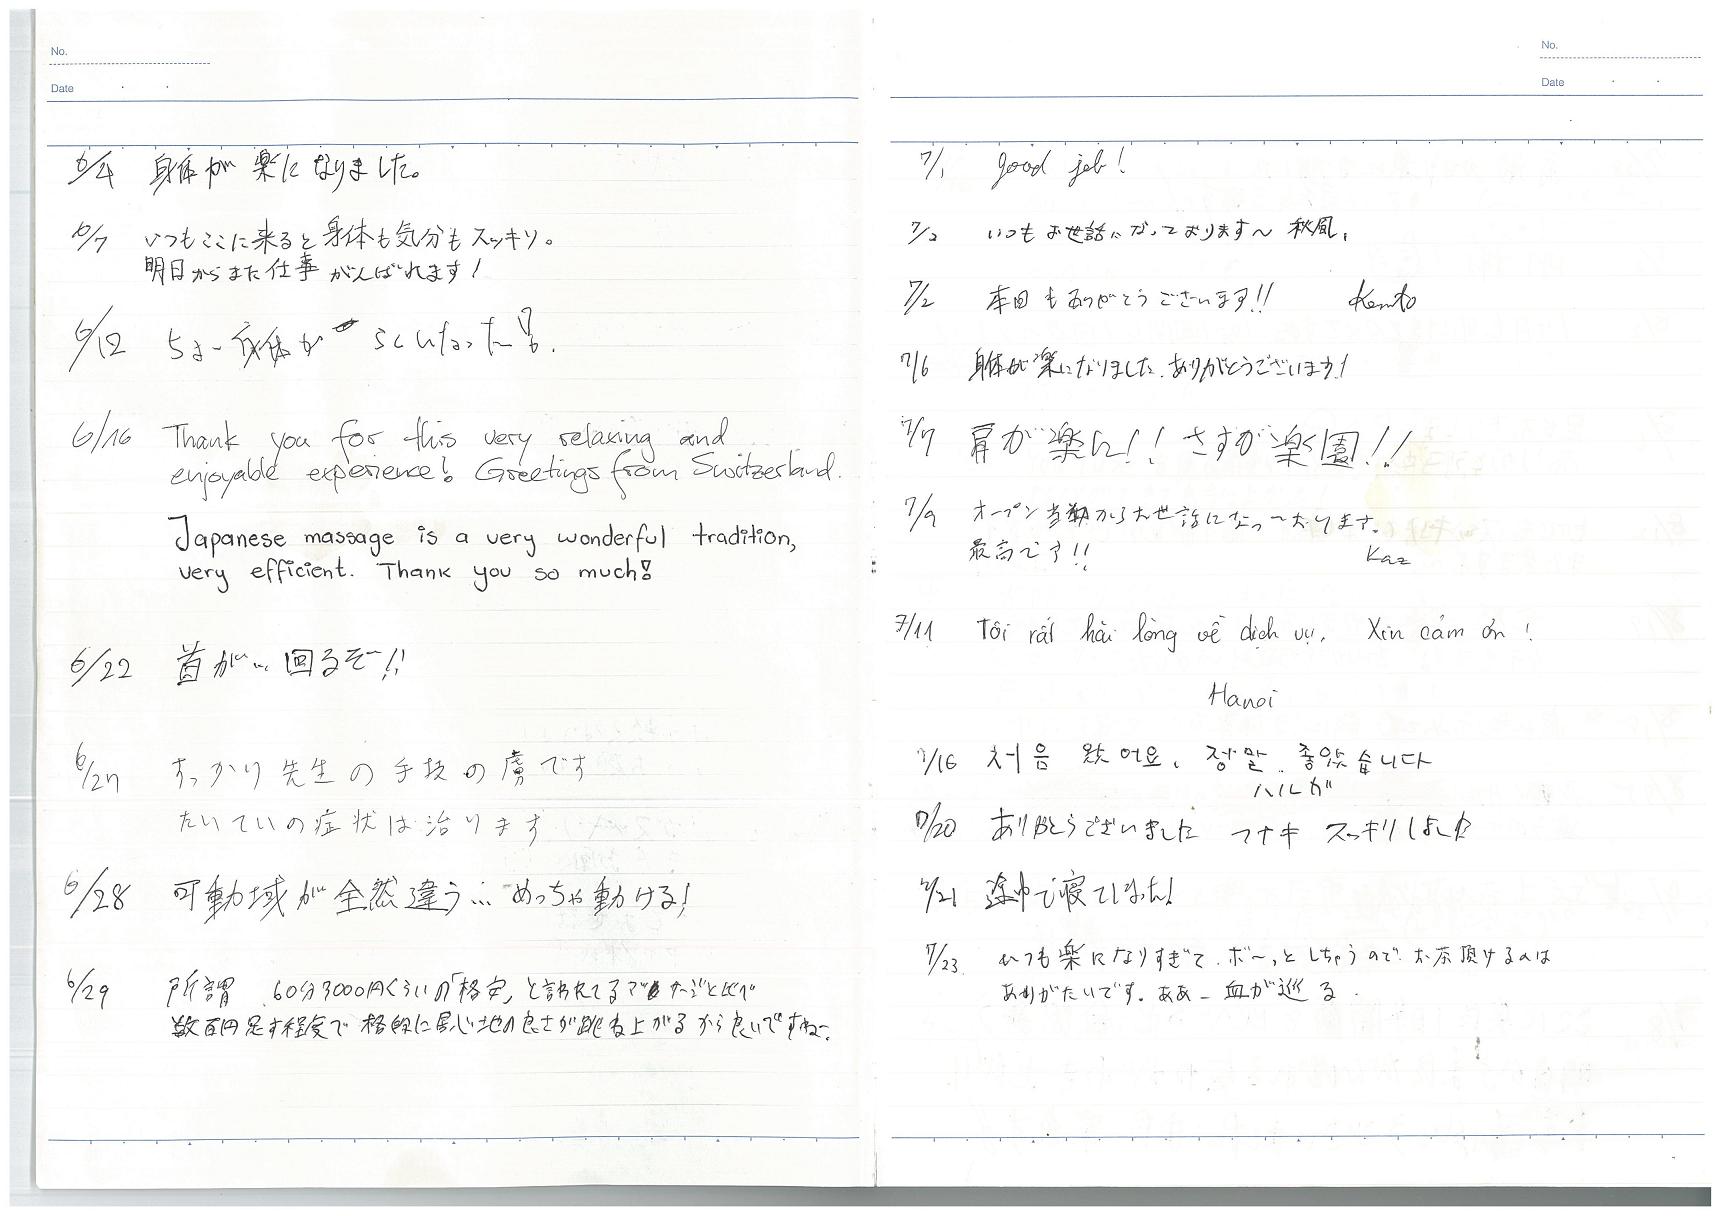 No.
Date
6/4 身体が楽になりました。
6/7 いつもここに来ると身体も気分もスッキリ。
明日からまた仕事がんばれます!
6/12 ちょー身体がらくになったー!
6/16 Thank you for this very relaxing and
enjoyable experience! Greetings from Switzerland.
Japanese massage is a very wonderful tradition,
very efficient. Thank you so much!
6/22 首が… 回るぞー!!
6/27 すっかり先生の手技の虜です
たいていの症状は治ります
6/28 可動域が全然違う… めっちゃ動ける!
6/29 所謂 60分3000円くらいの「格安」と言われてる と比べ
数百円足す程度で格段に居心地の良さが跳ね上がるから良いですねー。
No.
Date
7/1 good job!
7/2 いつもお世話になっております〜 秋風。
7/2 本日もありがとうございます!! Kento
7/6 身体が楽になりました。ありがとうございます!
7/7 肩が楽に!! さすが楽園!!
7/9 オープン当初からお世話になっております。
最高です!! Kaz
7/11 Tôi rất hài lòng về dịch vụ. Xin cảm ơn!
Hanoi
7/16 처음 왔어요. 정말 좋았습니다
ハルが
7/20 ありがとうございました スッキリしました
7/21 途中で寝てしまった!
7/23 いつも楽になりすぎて、ボ〜っとしちゃうので、お茶頂けるのは
ありがたいです。ああー血が巡る